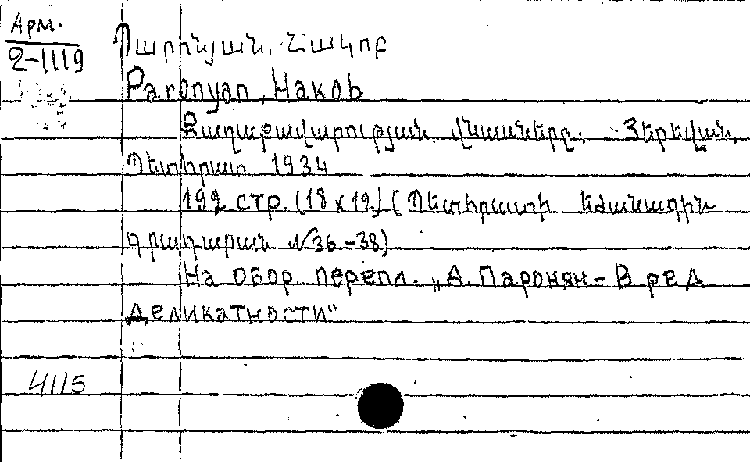 Арм.
2-1119
Պարոնյան, Հակոբ
Paronyan, Hakob
Քաղաքավարության վնասները. Յերեվան,
Պետհրատ 1934
192 стр. (18 x 12) (Պետհրատի եժանագին
գրադարան N 36-38)
На обор. перепл. „А. Паронян - Вред
деликатности"
4115